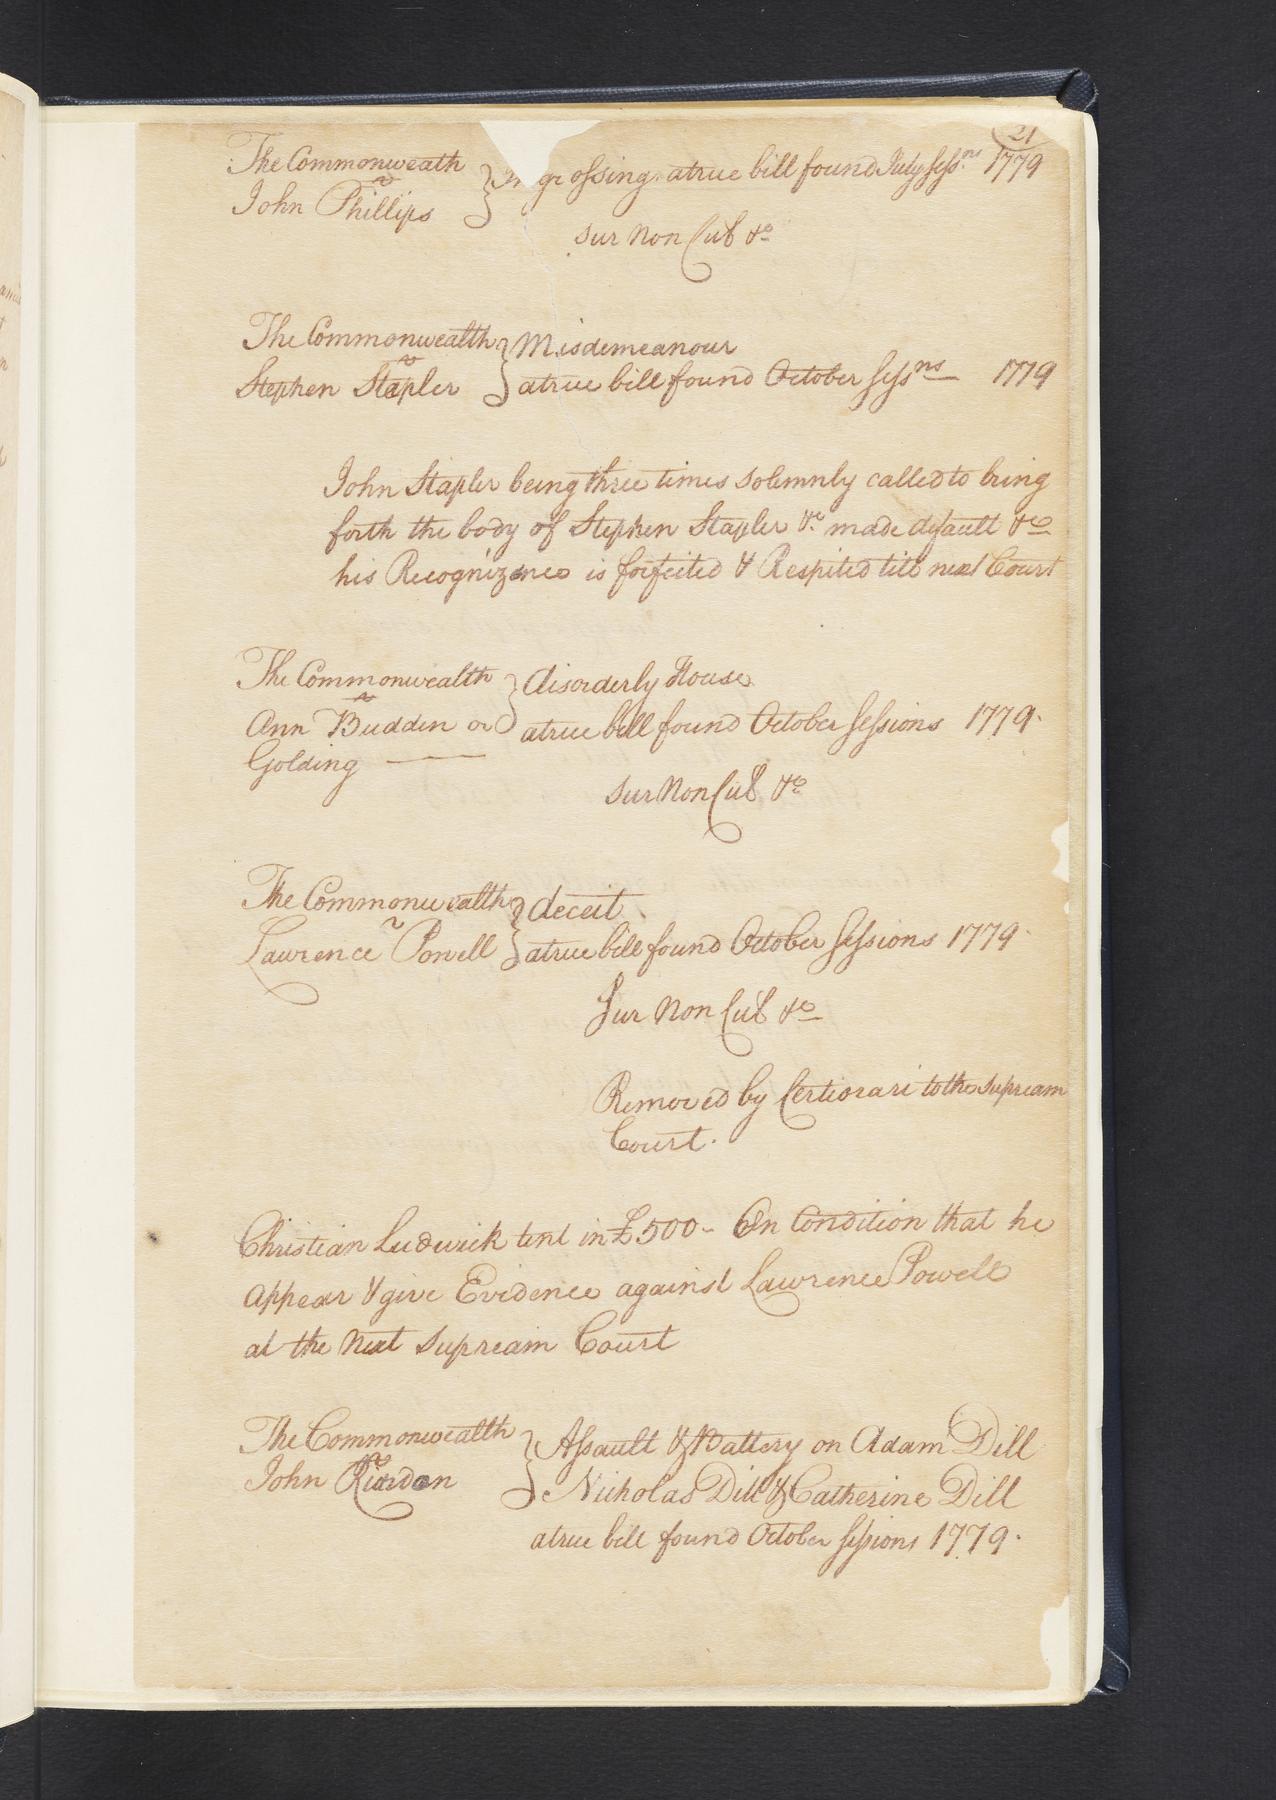 21
The Commonweath } Ingrossing atrue bill found July Sessns 1779
v
John Phillips
Sur Non Cul &c
The Commonwealth } Misdemeanour
v
Stephen Stapler } atrue bill found October Sessns 1779
John Stapler being three times solemnly called to bring
forth the body of Stephen Stapler &c made default &c
his Recognizance is forfeited & Respited till next Court
The Commonwealth } disorderly House
v
Ann Budden or } atrue bill found October Sessions 1779.
Golding
Sur Non Cul &c
The Commonwealth } deceit
v
Lawrence Powell } atrue bill found October Sessions 1779.
Sur Non Cul &c
Removed by Certiorari to the Supream
Court.
Christian Ludwick tent in £500 - On Condition that he
appear & give Evidence against Lawrence Powell
at the Next Supream Court
The Commonwealth } Assault & Battery on Adam Dill
v
John Riordon } Nicholas Dill & Catherine Dill
atrue bill found October Sessions 1779.